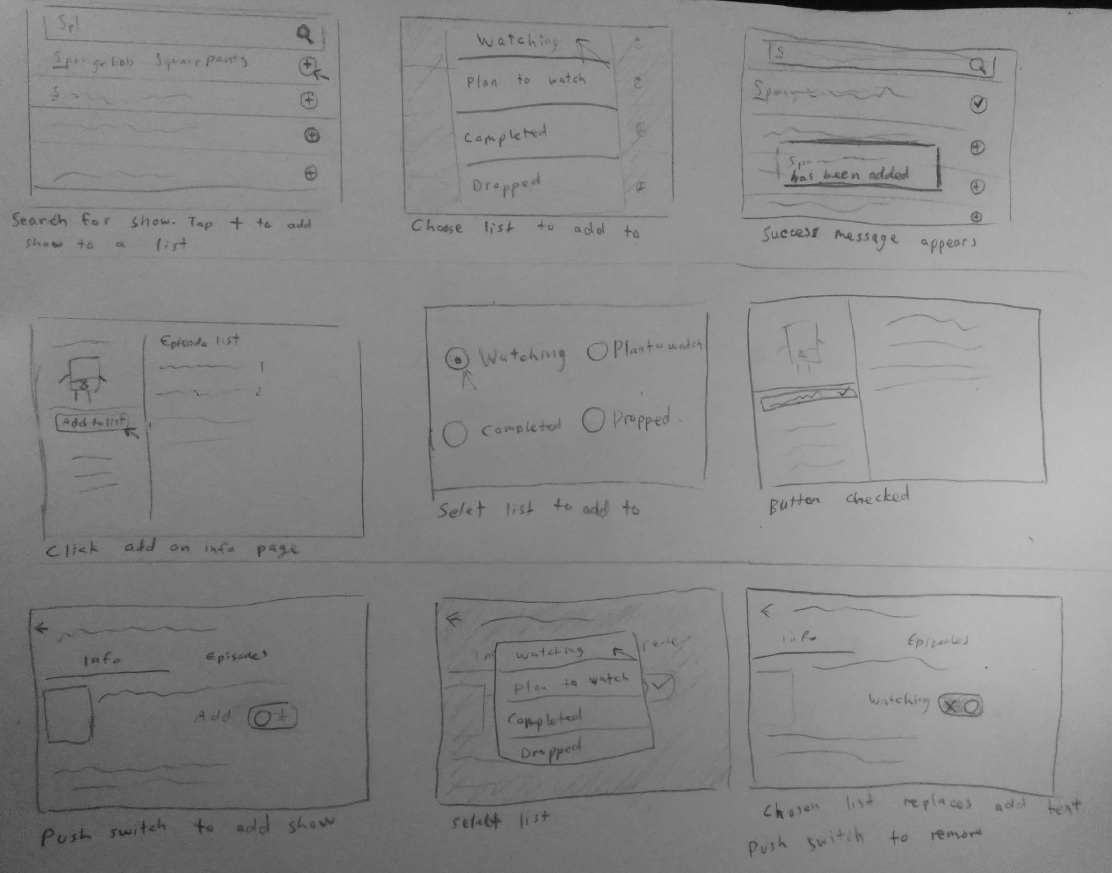 Spl
Spongebob Squarepants
Search for show. Tap + to add
show to a list
Watching
Plan to watch
Completed
Dropped
Choose list to add to
has been added
Success message appears
Episode list
1
2
Add to list
Click add on info page
Watching
Plan to watch
Completed
Dropped
Selet list to add to
Button checked
Info
Episodes
Add
Push switch to add show
Watching
Plan to watch
Completed
Dropped
Select list
Info
Episodes
Watching
Chosen list replaces add text
Push switch to remove